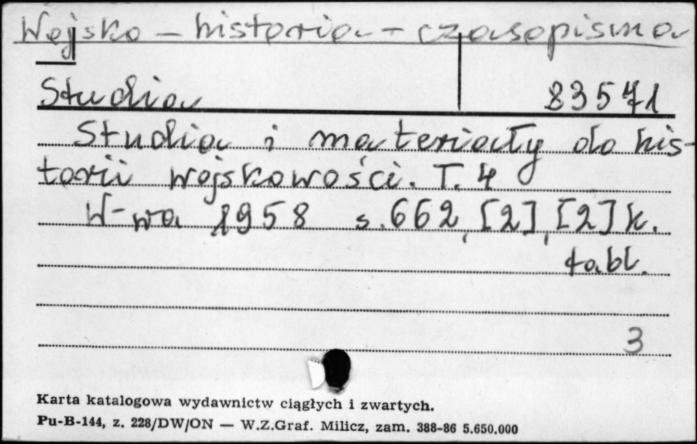 Wojsko – historia – czasopisma
Studia 83571
Studia i materiały do his-
torii wojskowości. T. 4
W-wa 1958 s. 662, [2], [2] k.
tabl.
3
Karta katalogowa wydawnictw ciągłych i zwartych.
Pu-B-144, z. 228/DW/ON — W.Z.Graf. Milicz, zam. 388-86 5.650.000